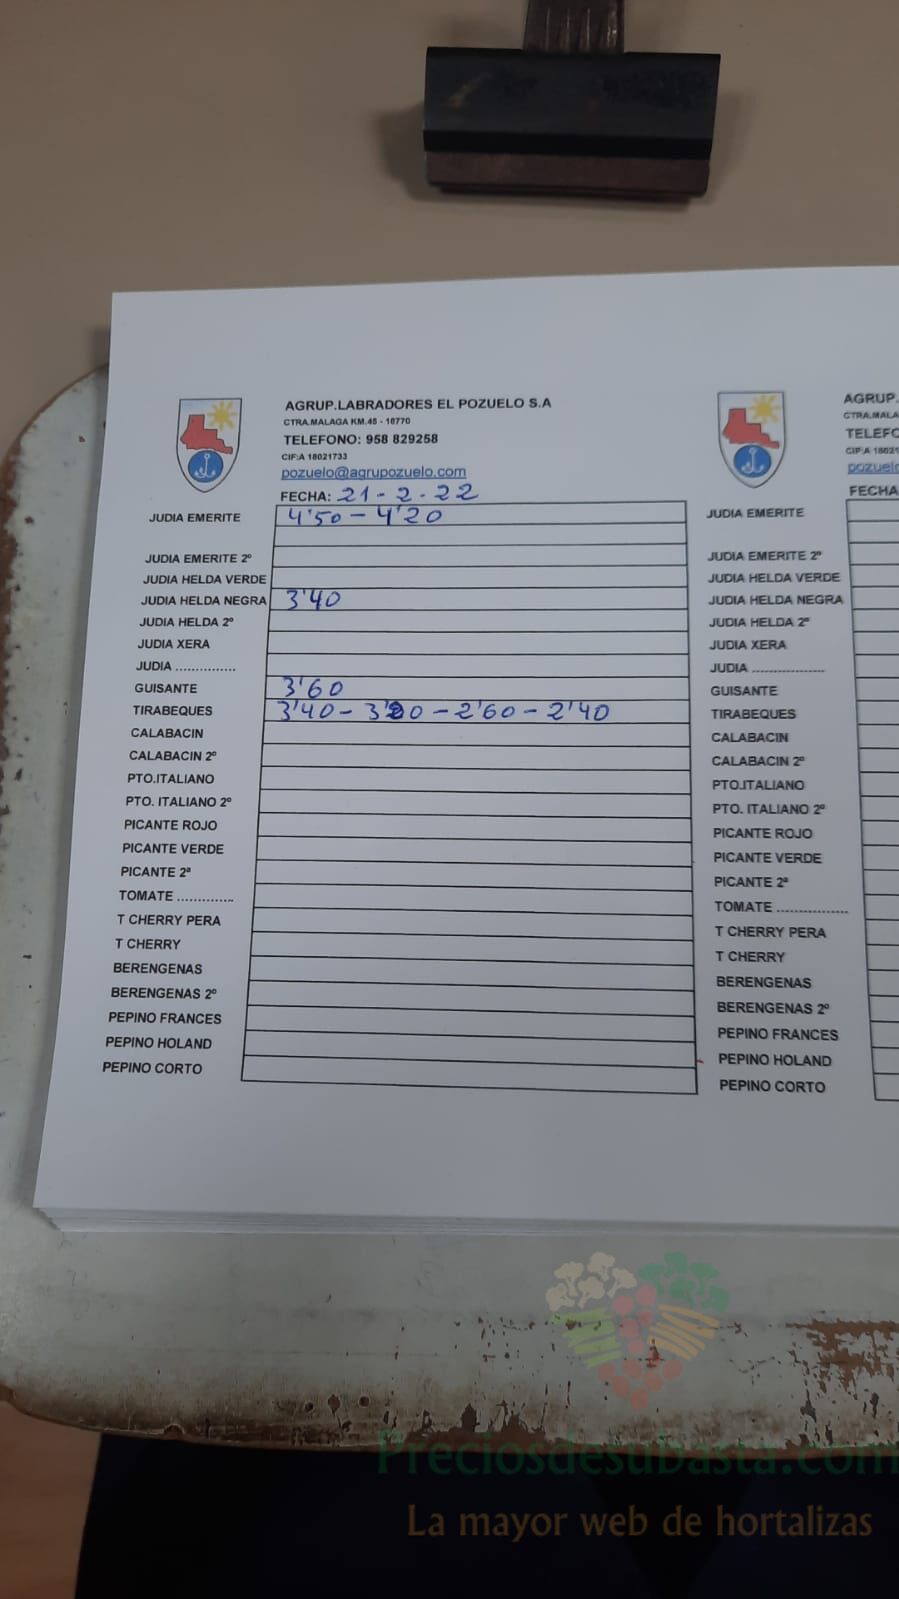 AGRUP.LABRADORES EL POZUELO S.A
CTRA.MALAGA KM.45 - 18770
TELEFONO: 958 829258
CIF:A 18021733
pozuelo@agrupozuelo.com
FECHA: 21-2-22
JUDIA EMERITE 4'50 - 4'20
JUDIA EMERITE 2º
JUDIA HELDA VERDE
JUDIA HELDA NEGRA 3'40
JUDIA HELDA 2º
JUDIA XERA
JUDIA ...............
GUISANTE 3'60
TIRABEQUES 3'40 - 3'20 - 2'60 - 2'40
CALABACIN
CALABACIN 2º
PTO.ITALIANO
PTO. ITALIANO 2º
PICANTE ROJO
PICANTE VERDE
PICANTE 2ª
TOMATE ..............
T CHERRY PERA
T CHERRY
BERENGENAS
BERENGENAS 2º
PEPINO FRANCES
PEPINO HOLAND
PEPINO CORTO
AGRUP.
CTRA.MALA
TELEFO
CIF:A 18021
pozuelo
FECHA
JUDIA EMERITE
JUDIA EMERITE 2º
JUDIA HELDA VERDE
JUDIA HELDA NEGRA
JUDIA HELDA 2º
JUDIA XERA
JUDIA ..................
GUISANTE
TIRABEQUES
CALABACIN
CALABACIN 2º
PTO.ITALIANO
PTO. ITALIANO 2º
PICANTE ROJO
PICANTE VERDE
PICANTE 2ª
TOMATE .................
T CHERRY PERA
T CHERRY
BERENGENAS
BERENGENAS 2º
PEPINO FRANCES
PEPINO HOLAND
PEPINO CORTO
Preciosdesubasta.com
La mayor web de hortalizas